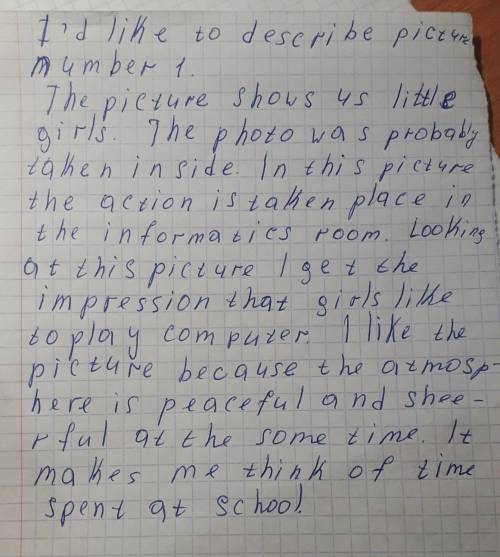 I'd like to describe picture
number 1.
The picture shows us little
girls. The photo was probably
taken inside. In this picture
the action is taken place in
the informatics room. Looking
at this picture I get the
impression that girls like
to play computer. I like the
picture because the atmosp-
here is peaceful and shee-
rful at the some time. It
makes me think of time
spent at school.